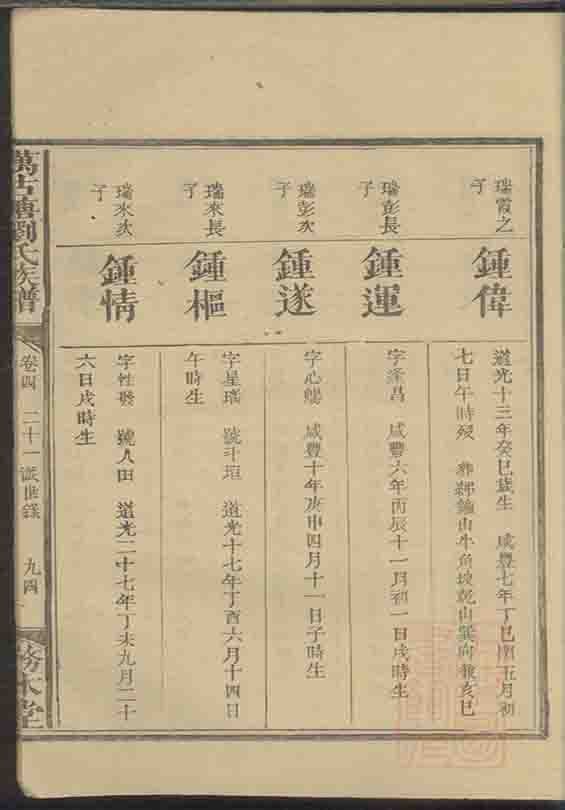 瑞霞之
子
鍾偉
道光十三年癸巳歲生 咸豐七年丁巳閏五月初
七日午時歿 葬 山牛角坡乾山巽向兼亥巳
瑞彭長
子
鍾運
字逢昌 咸豐六年丙辰十一月初一日戌時生
瑞彭次
子
鍾遂
字心 咸豐十年庚申四月十一日子時生
瑞來長
子
鍾樞
字星瑞 號斗垣 道光十七年丁酉六月十四日
午時生
瑞來次
子
鍾情
字性發 號人田 道光二十七年丁未九月二十
六日戌時生
萬古塘劉氏族譜
卷四 二十一派世錄 九四
務本堂